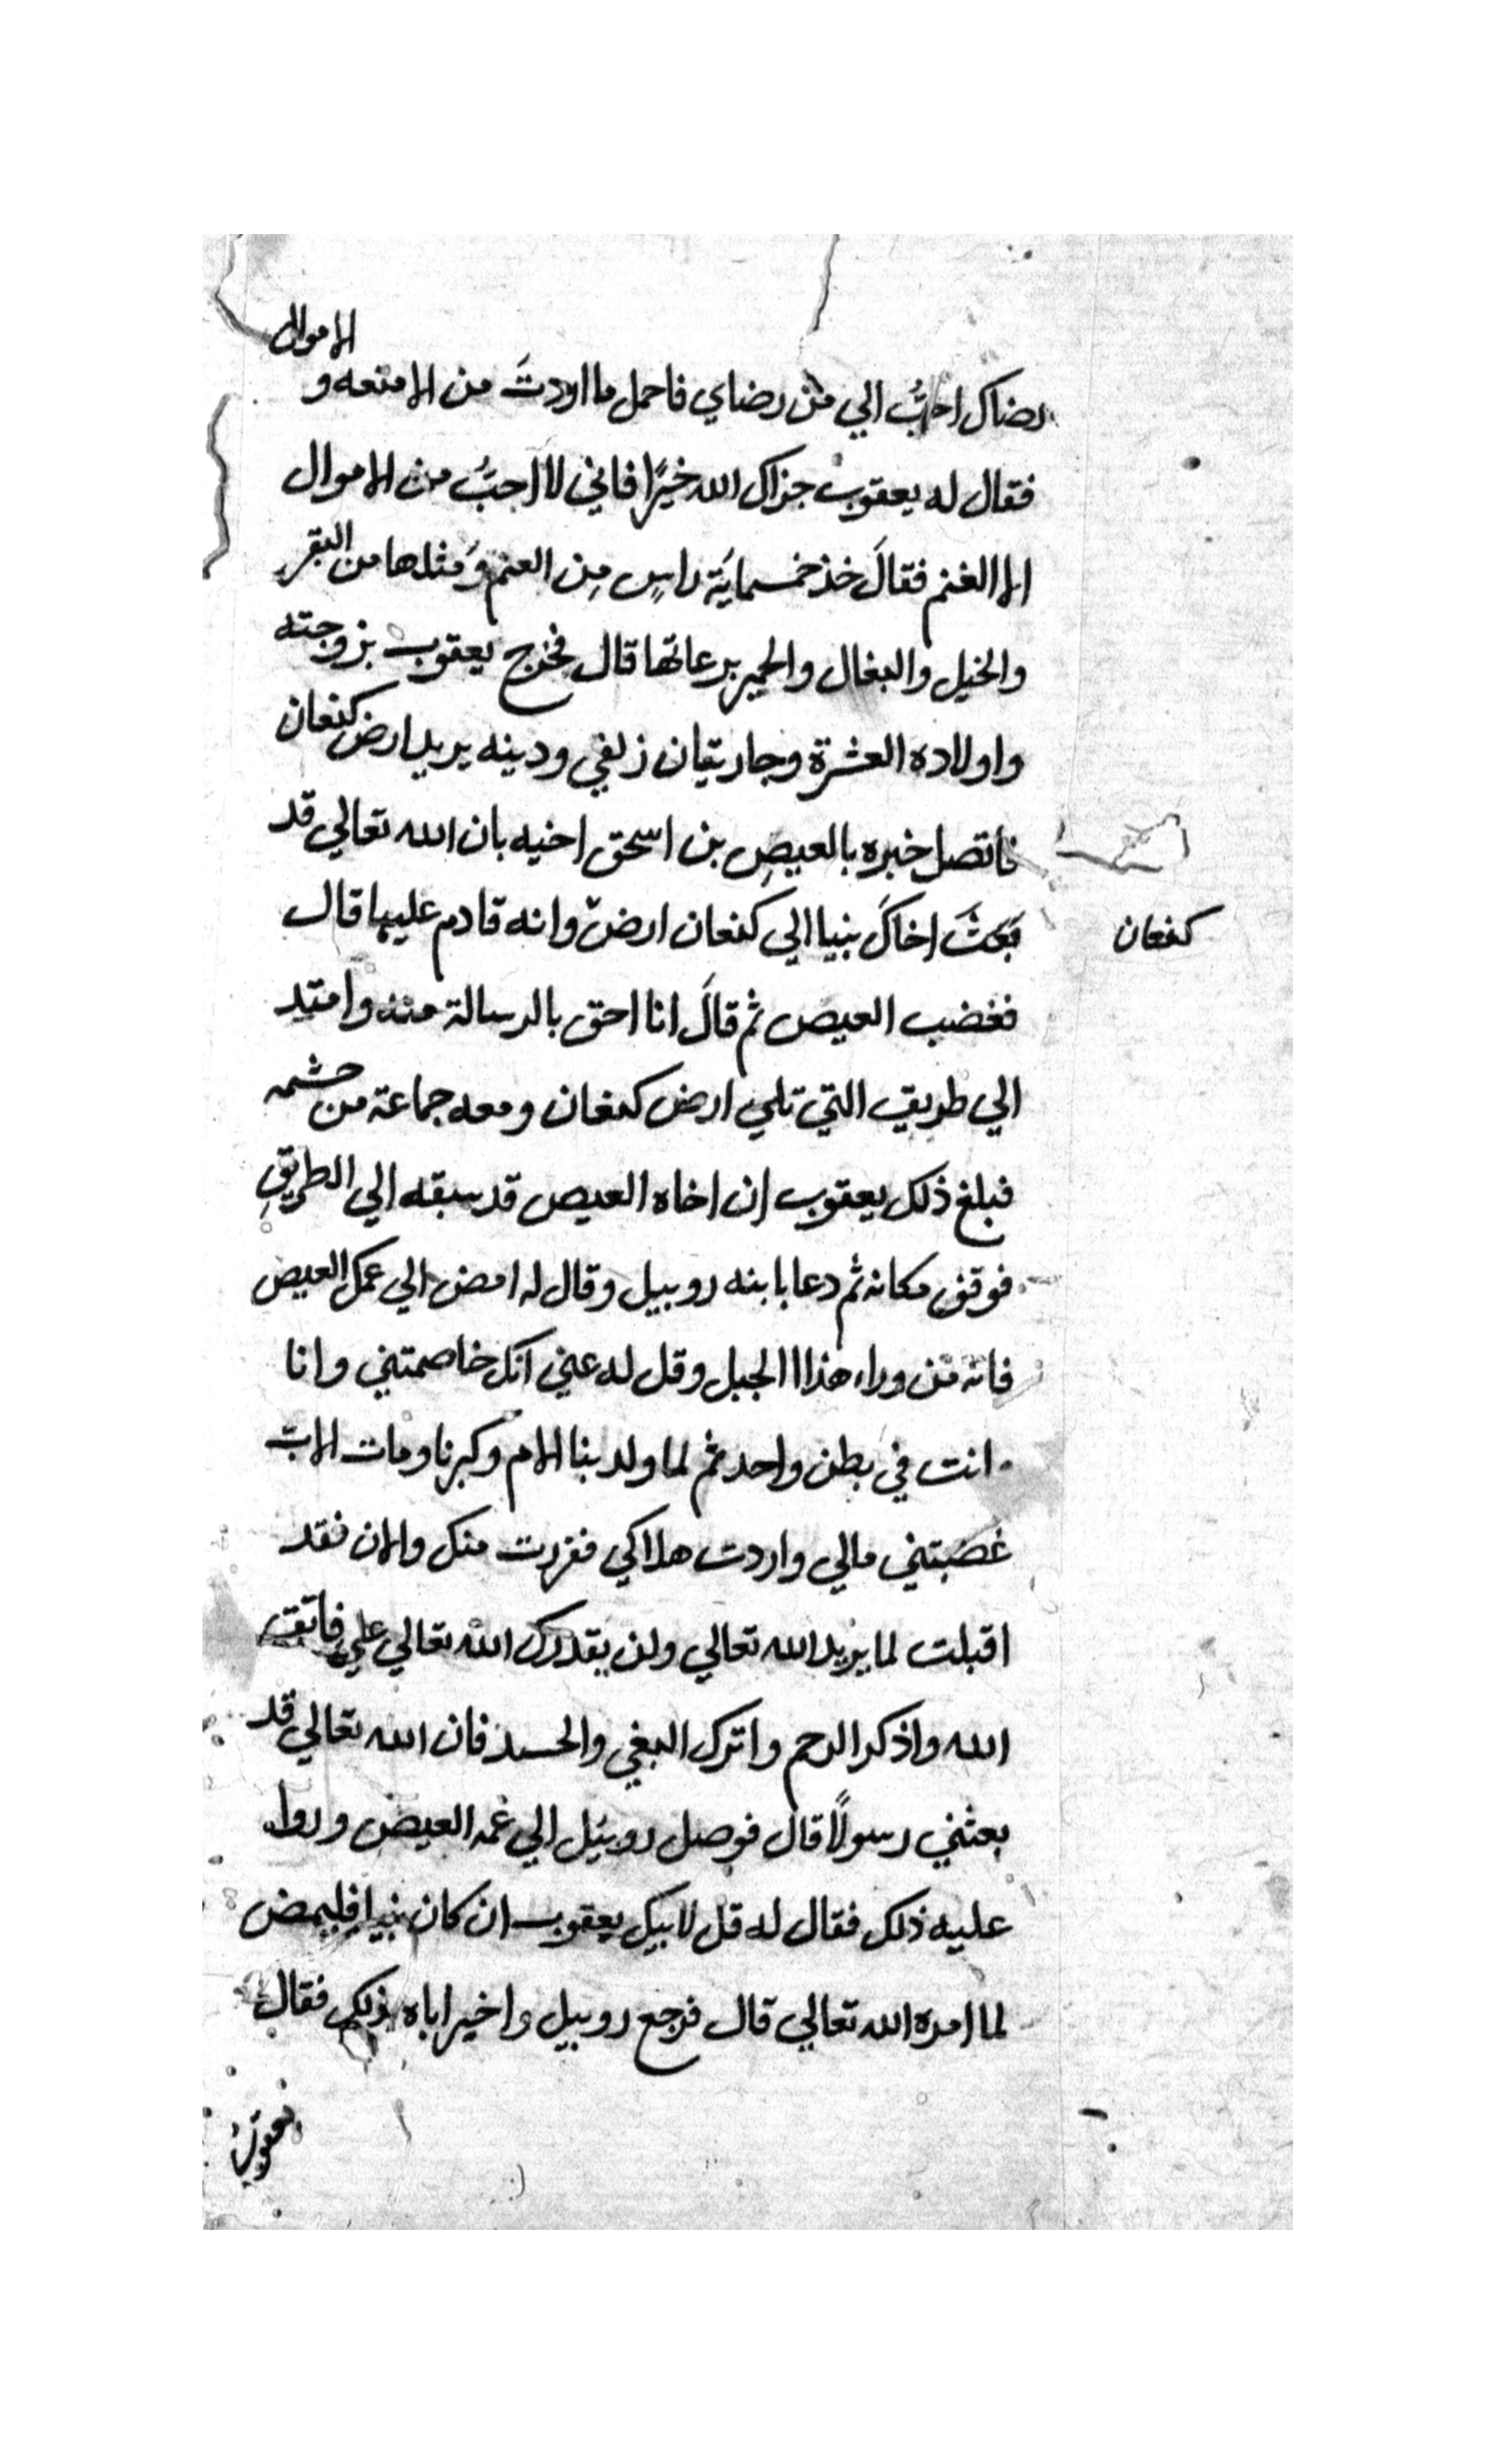 رضاك احبُّ الي من رضاي فاحمل ما اردتَ من الامتعه و الاموال
فقال له يعقوب جزاك الله خيرًا فاني لا احبُّ من الاموال
الا الغنم فقالَ خذ خمسمايَة راسٍ مِن الغنم وَمثلها من البقر
والخيل والبغال والحمير برعاتها قال فخرج يعقوب بزوجته
واولاده العشرة وجاريتان زلفي ودينه يريد ارض كنعان
فاتصل خبره بالعيصِ بن اسحق اخيه بان الله تعالي قد
بَعثَ اخاكَ نبيا الي كنعان ارض وانه قادم عليها قال
كنعان
فغضب العيص ثم قالَ انا احق بالرسالة منه وامتد
الي طريق التي تلي ارض كنعان ومعه جماعة من حشمه
فبلغ ذلك يعقوب ان اخاه العيص قد سبقه الي الطريقِ
فوقف مكانه ثم دعا بابنه روبيل وقال له امض الي عمك العيص
فانه من وراء هذا الجبل وقل له عني انك خاصمتني وانا
انت في بطن واحد ثم لما ولد بنا الام وكبرنا ومات الاب
غصَبتني مالي واردت هلاكي ففررت منك والان فقد
اقبلت لما يريد الله تعالي ولن يقدرك الله تعالي علي فاتق
الله واذكر الرحم واترك البغي والحسد فان الله تعالي قد
بعثني رسولًا قال فوصل روبيل الي عمه العيص
عليه ذلك فقال له قل لابيك يعقوب ان كان نبيا فليمض
لما امره الله تعالي قال فرجع روبيل واخبر اباه بذلك فقال
يعقوب